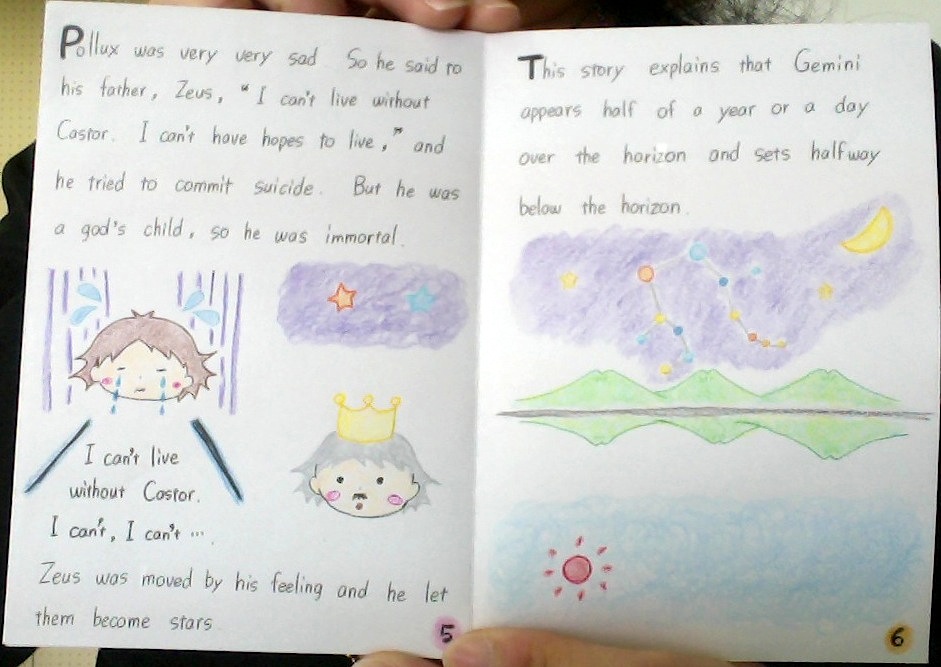 Pollux was very very sad. So he said to
his father, Zeus, "I can't live without
Castor. I can't have hopes to live," and
he tried to commit suicide. But he was
a god's child, so he was immortal.
I can't live
without Castor.
I can't, I can't ….
Zeus was moved by his feeling and he let
them become stars
5
This story explains that Gemini
appears half of a year or a day
over the horizon and sets halfway
below the horizon.
6